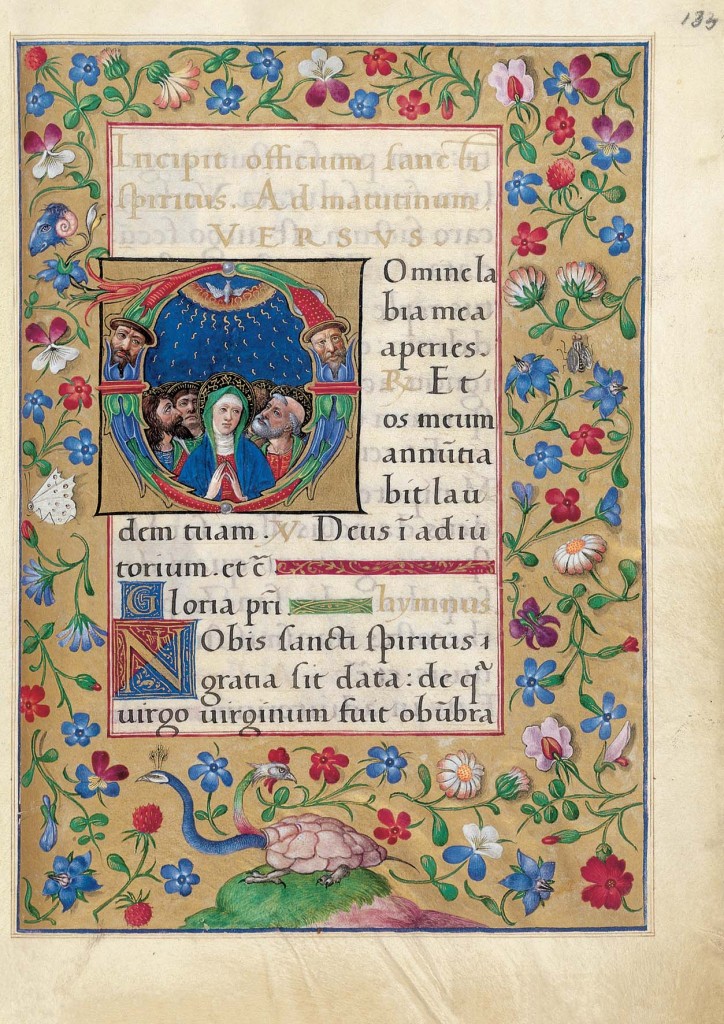 133
Incipit officium sancti
spiritus. Ad matutinum.
VERSUS.
Domine la
bia mea
aperies.
R. Et
os meum
annūtia
bit lau
dem tuam. V Deus ī adiu
torium. et c̄
Gloria pr̄i hymnus
Nobis sancti spiritus
gratia sit data: de qª
uirgo uirginum fuit obūbra